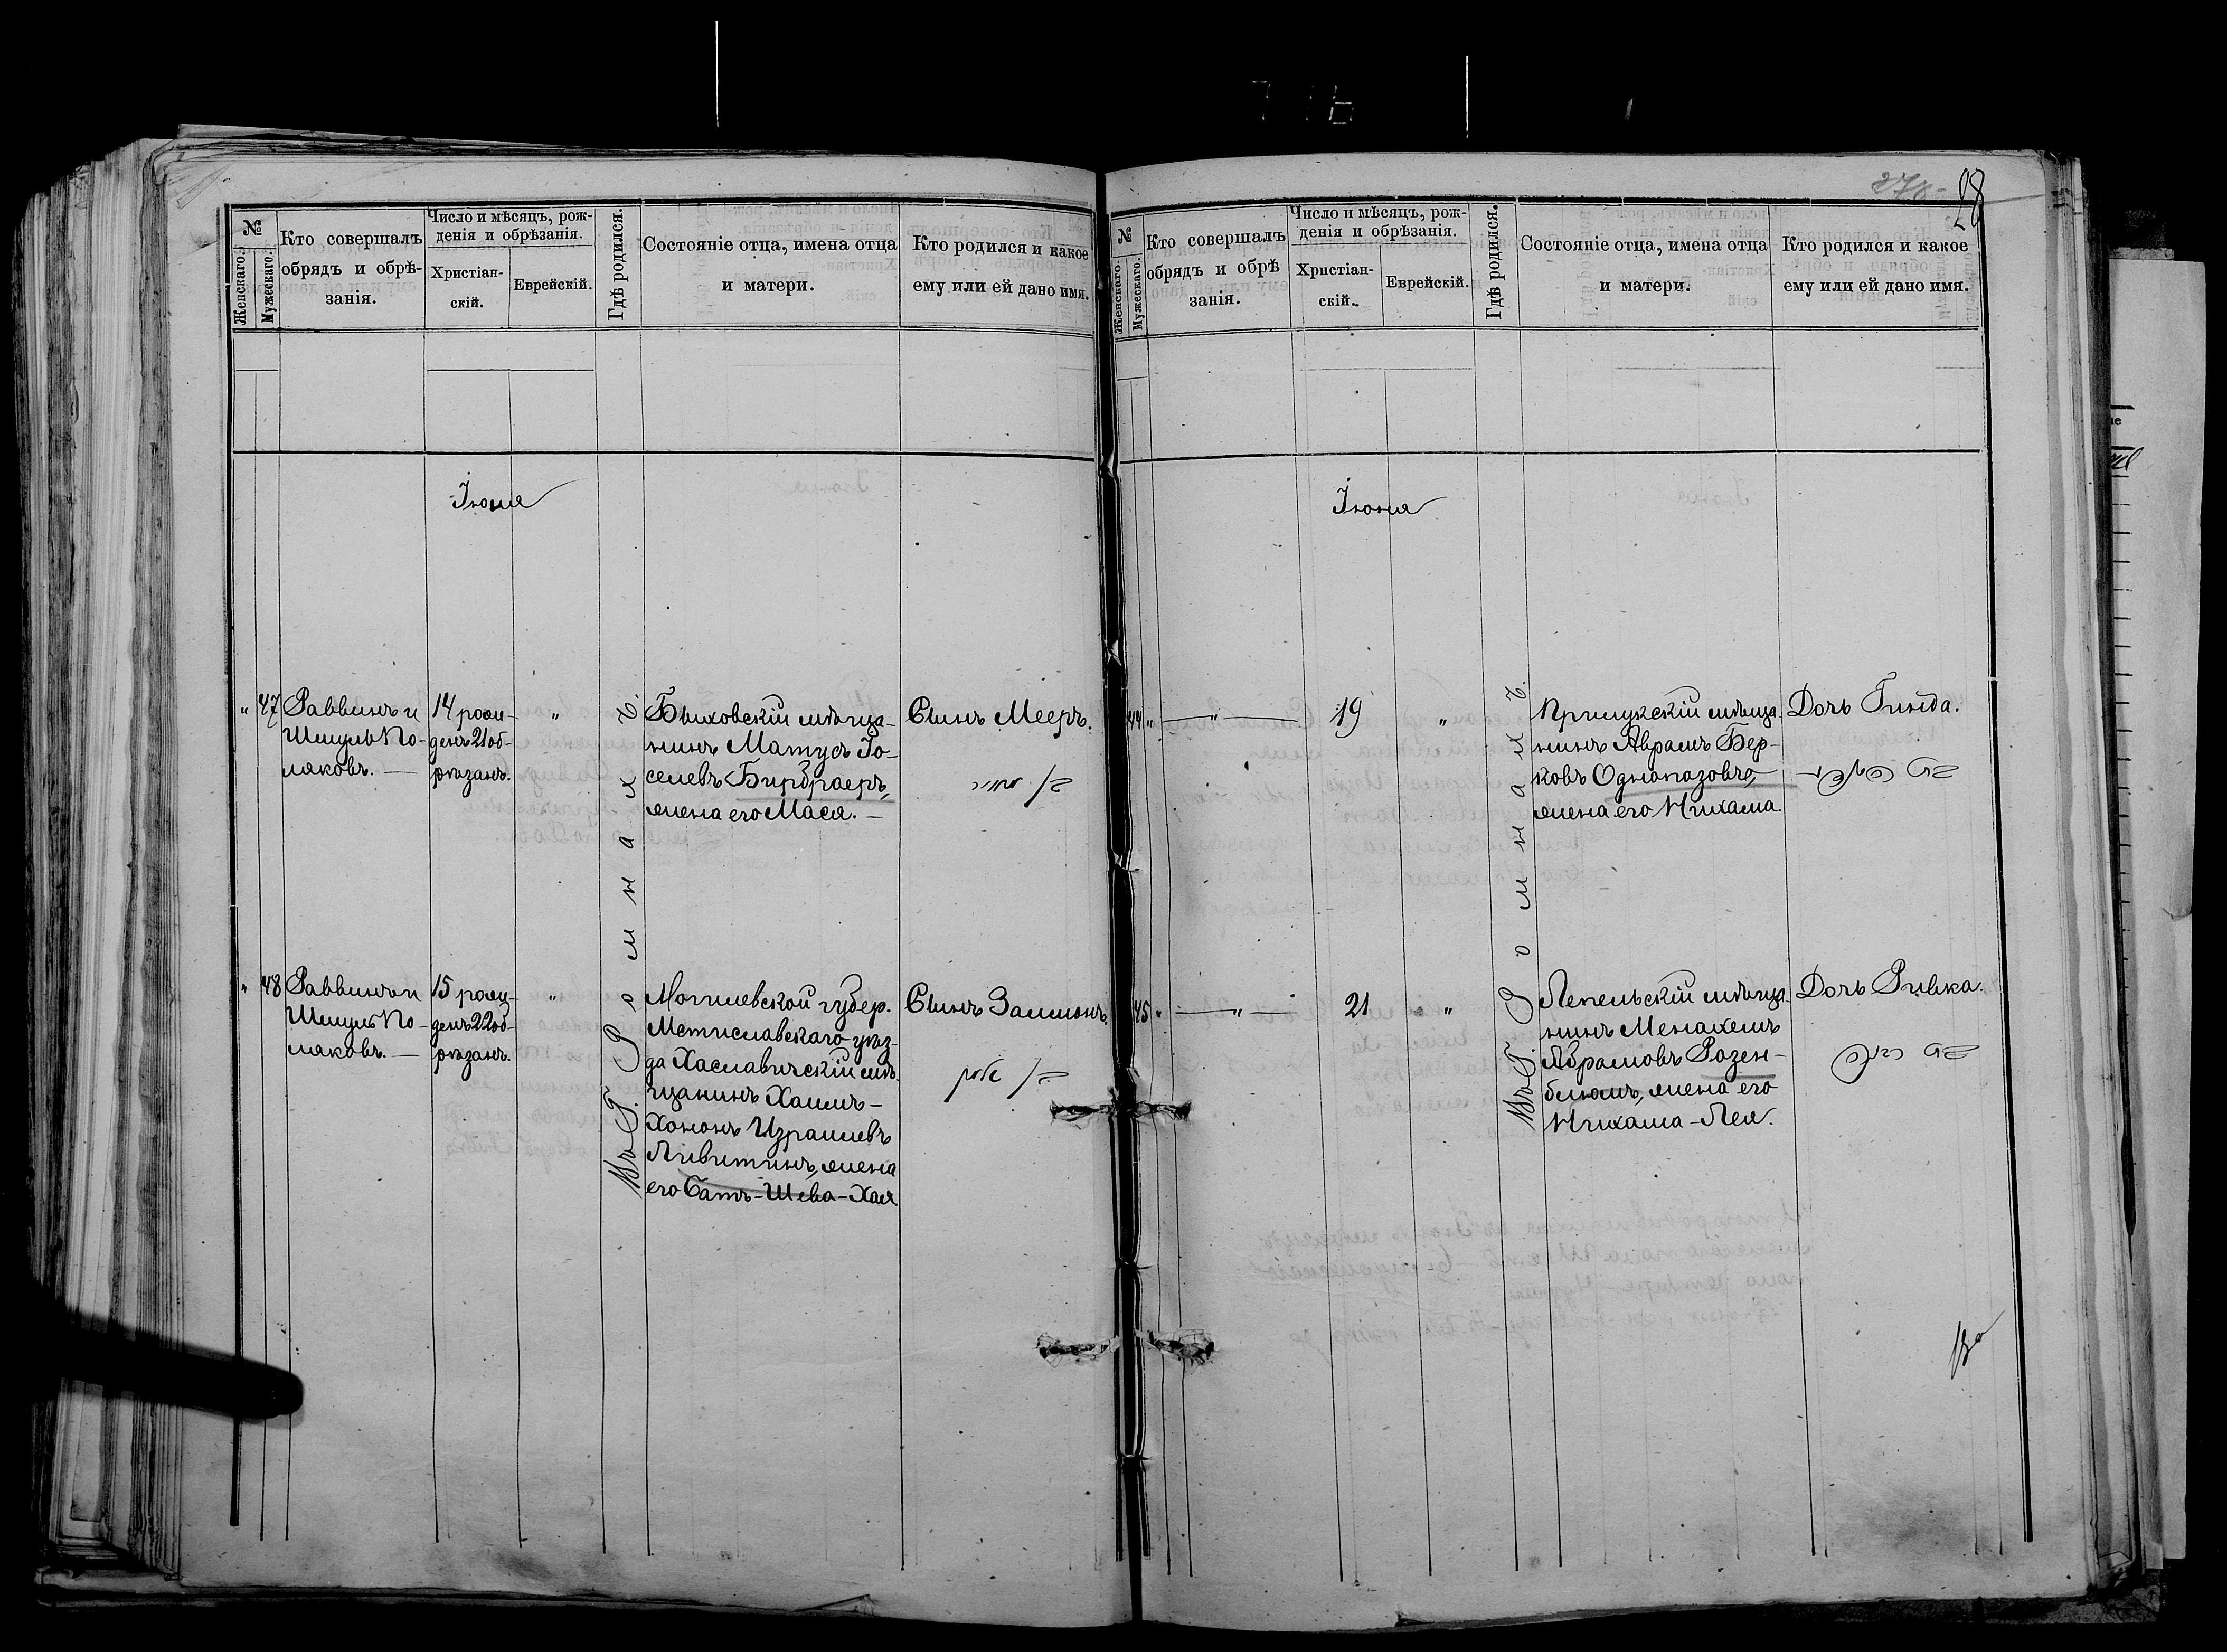 №
Женскаго.
Мужескаго.
Кто совершалъ
обрядъ и обрѣ-
занія.
Число и мѣсяцъ, рож-
денія и обрѣзанія.
Христіан-
скій.
Еврейскій.
Гдѣ родился.
Состояніе отца, имена отца
и матери.
Кто родился и какое
ему или ей дано имя.
Іюня
" 47
Раввинъ и
Шмуль По-
ляковъ. —
14 рож-
денъ 21 об-
рѣзанъ.
"
Быховскій мѣща-
нинъ Матусъ Іо-
селевъ Бирбраеръ,
жена его Мася. —
Сынъ Мееръ.
" 48
Раввинъ и
Шмуль По-
ляковъ. —
15 рож-
денъ 22 об-
рѣзанъ.
"
Могилевской губер.
Мстиславскаго уѣз-
да Хаславичскій мѣ-
щанинъ Хаимъ-
Хононъ Израилевъ
Ливитинъ, жена
его Батъ-Шева-Хая
Сынъ Залмонъ.
Въ Г. Ромнахъ.
28
№
Женскаго.
Мужескаго.
Кто совершалъ
обрядъ и обрѣ
занія.
Число и мѣсяцъ, рож-
денія и обрѣзанія.
Христіан-
скій.
Еврейскій.
Гдѣ родился.
Состояніе отца, имена отца
и матери.
Кто родился и какое
ему или ей дано имя.
Іюня
44 "
— " —
19
"
Прилукскій мѣща-
нинъ Аврамъ Бер-
ковъ Однопозовъ,
жена его Нихама
Дочь Гинда.
45 "
— " —
21
"
Лепельскій мѣща-
нинъ Менахемъ
Абрамовъ Розен-
блюмъ, жена его
Нихама-Лея.
Дочь Ривка.
Въ Г. Ромнахъ.